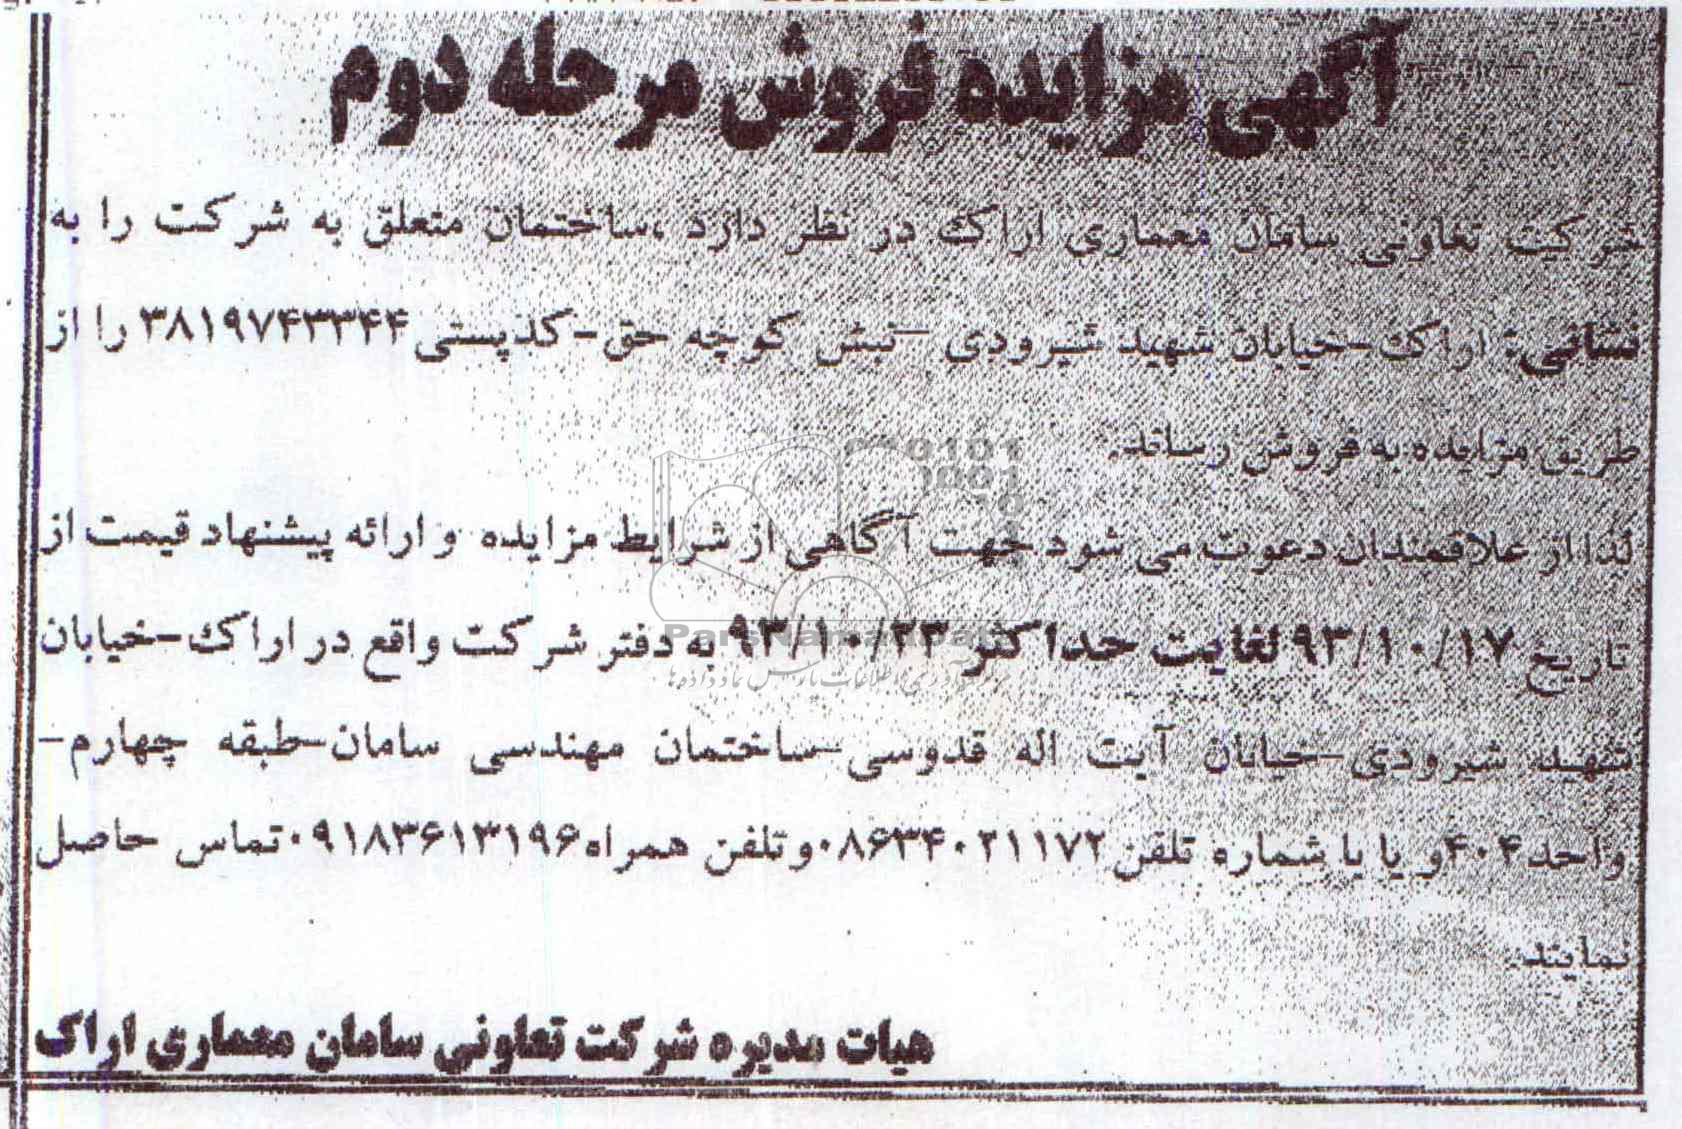 آگهی مزایده فروش مرحله دوم
شرکت تعاونی سامان معماری اراک در نظر دارد ،ساختمان متعلق به شرکت را به
نشانی: اراک-خیابان شهید شیرودی -نبش کوچه حق-کدپستی ۳۸۱۹۷۴۳۳۴۴ را از
طریق مزایده به فروش رساند.
لذا از علاقمندان دعوت می شود جهت آگاهی از شرایط مزایده و ارائه پیشنهاد قیمت از
تاریخ ۹۳/۱۰/۱۷ لغایت حداکثر ۹۳/۱۰/۲۳ به دفتر شرکت واقع در اراک-خیابان
شهید شیرودی-خیابان آیت اله قدوسی-ساختمان مهندسی سامان-طبقه چهارم-
واحد۴۰۴و یا با شماره تلفن ۰۸۶۳۴۰۲۱۱۷۲وتلفن همراه ۰۹۱۸۳۶۱۳۱۹۶تماس حاصل
نمایند.
هیات مدیره شرکت تعاونی سامان معماری اراک
ParsNamadData